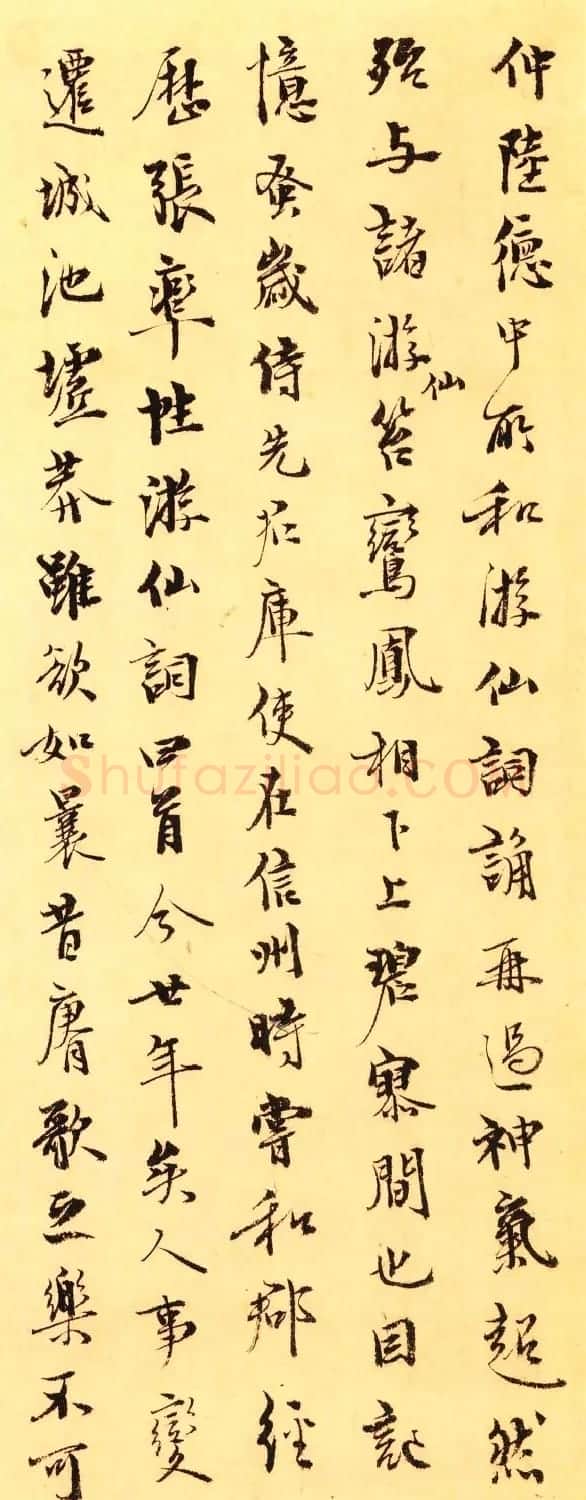 仲陸德中所和游仙詞誦再過神氣超然
殆与諸游仙笞鸞鳳相下上碧寥間也因記
憶蚤歲侍先君庫使在信州時嘗和郡經
歷張率性游仙詞回首今廿年矣人事變
遷城池墟莽雖欲如曩昔賡歌之樂不可
Shufaziliao.com